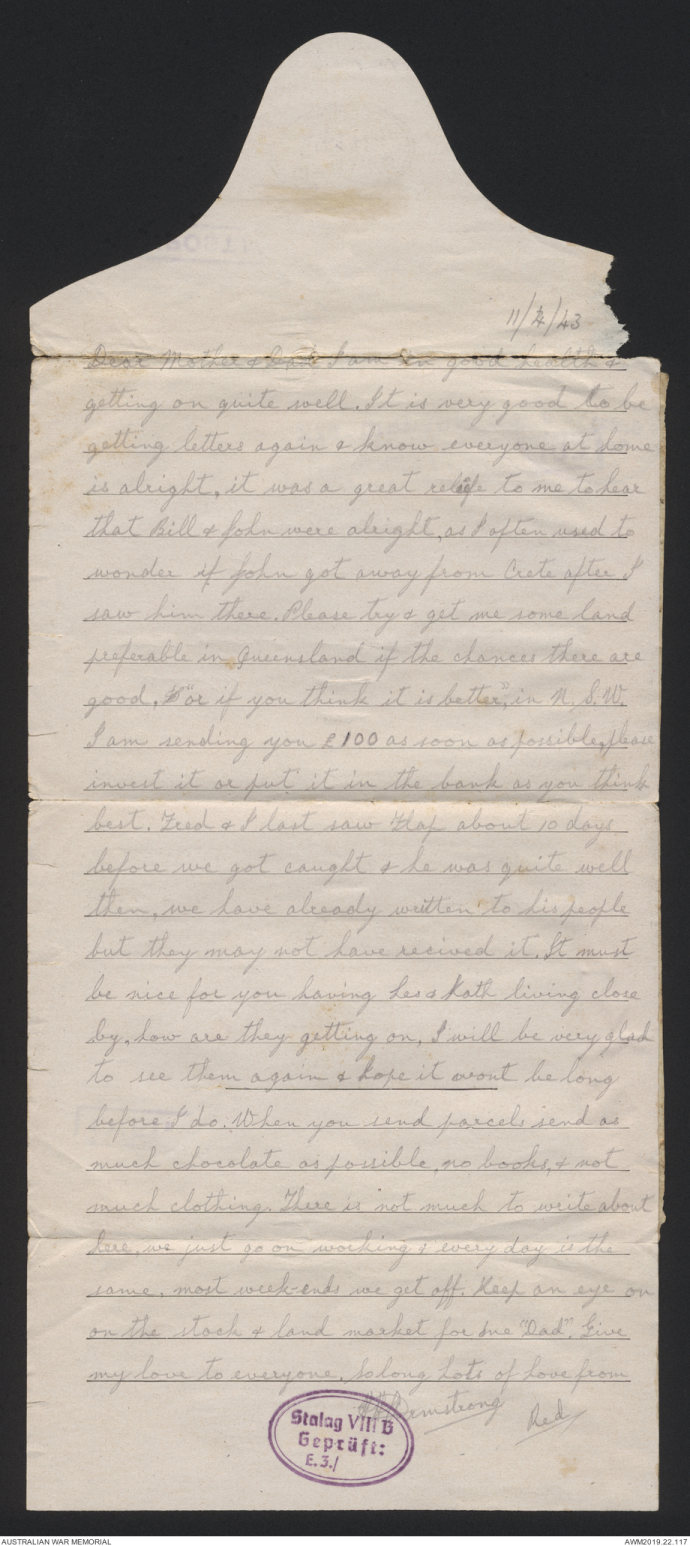 11/4/43
Dear Mother & Dad I am in good health &
getting on quite well. It is very good to be
getting letters again & know everyone at home
is alright, it was a great relife to me to hear
that Bill & John were alright, as I often used to
wonder if John got away from Crete after I
saw him there. Please try & get me some land
preferable in Queensland if the chances there are
good, "or if you think it is better", in N.S.W.
I am sending you £100 as soon as possible, please
invest it or put it in the bank as you think
best. Fred & I last saw Hap about 10 days
before we got caught & he was quite well
then, we have already written to his people
but they may not have recived it. It must
be nice for you having Les & Kath living close
by, how are they getting on, I will be very glad
to see them again & hope it wont be long
before I do. When you send parcels send as
much chocolate as possible, no books, & not
much clothing. There is not much to write about
here, we just go on working & every day is the
same, most week-ends we get off. Keep an eye on
on the stock & land market for me "Dad". Give
my love to everyone, Solong Lots of Love from
Armstrong Red
Stalag VIII B
Geprüft:
E.3./
AUSTRALIAN WAR MEMORIAL
AWM2019.22.117